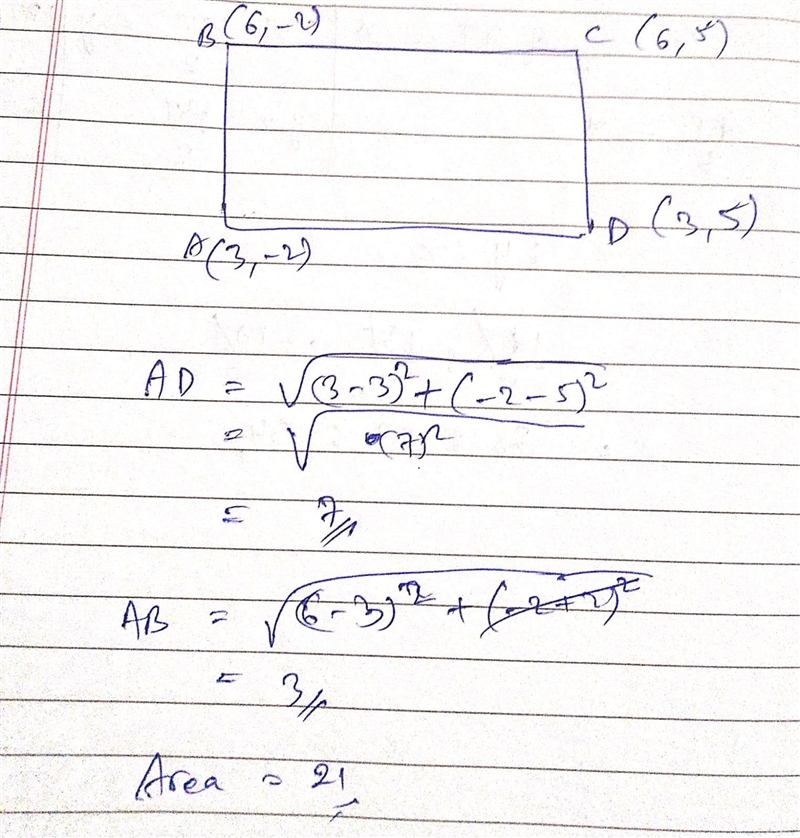 B (6,-2) C (6,5)
A (3,-2) D (3,5)
AD = √(3-3)² + (-2-5)²
= √(7)²
= 7
AB = √(6-3)² + (-2+2)²
= 3
Area = 21